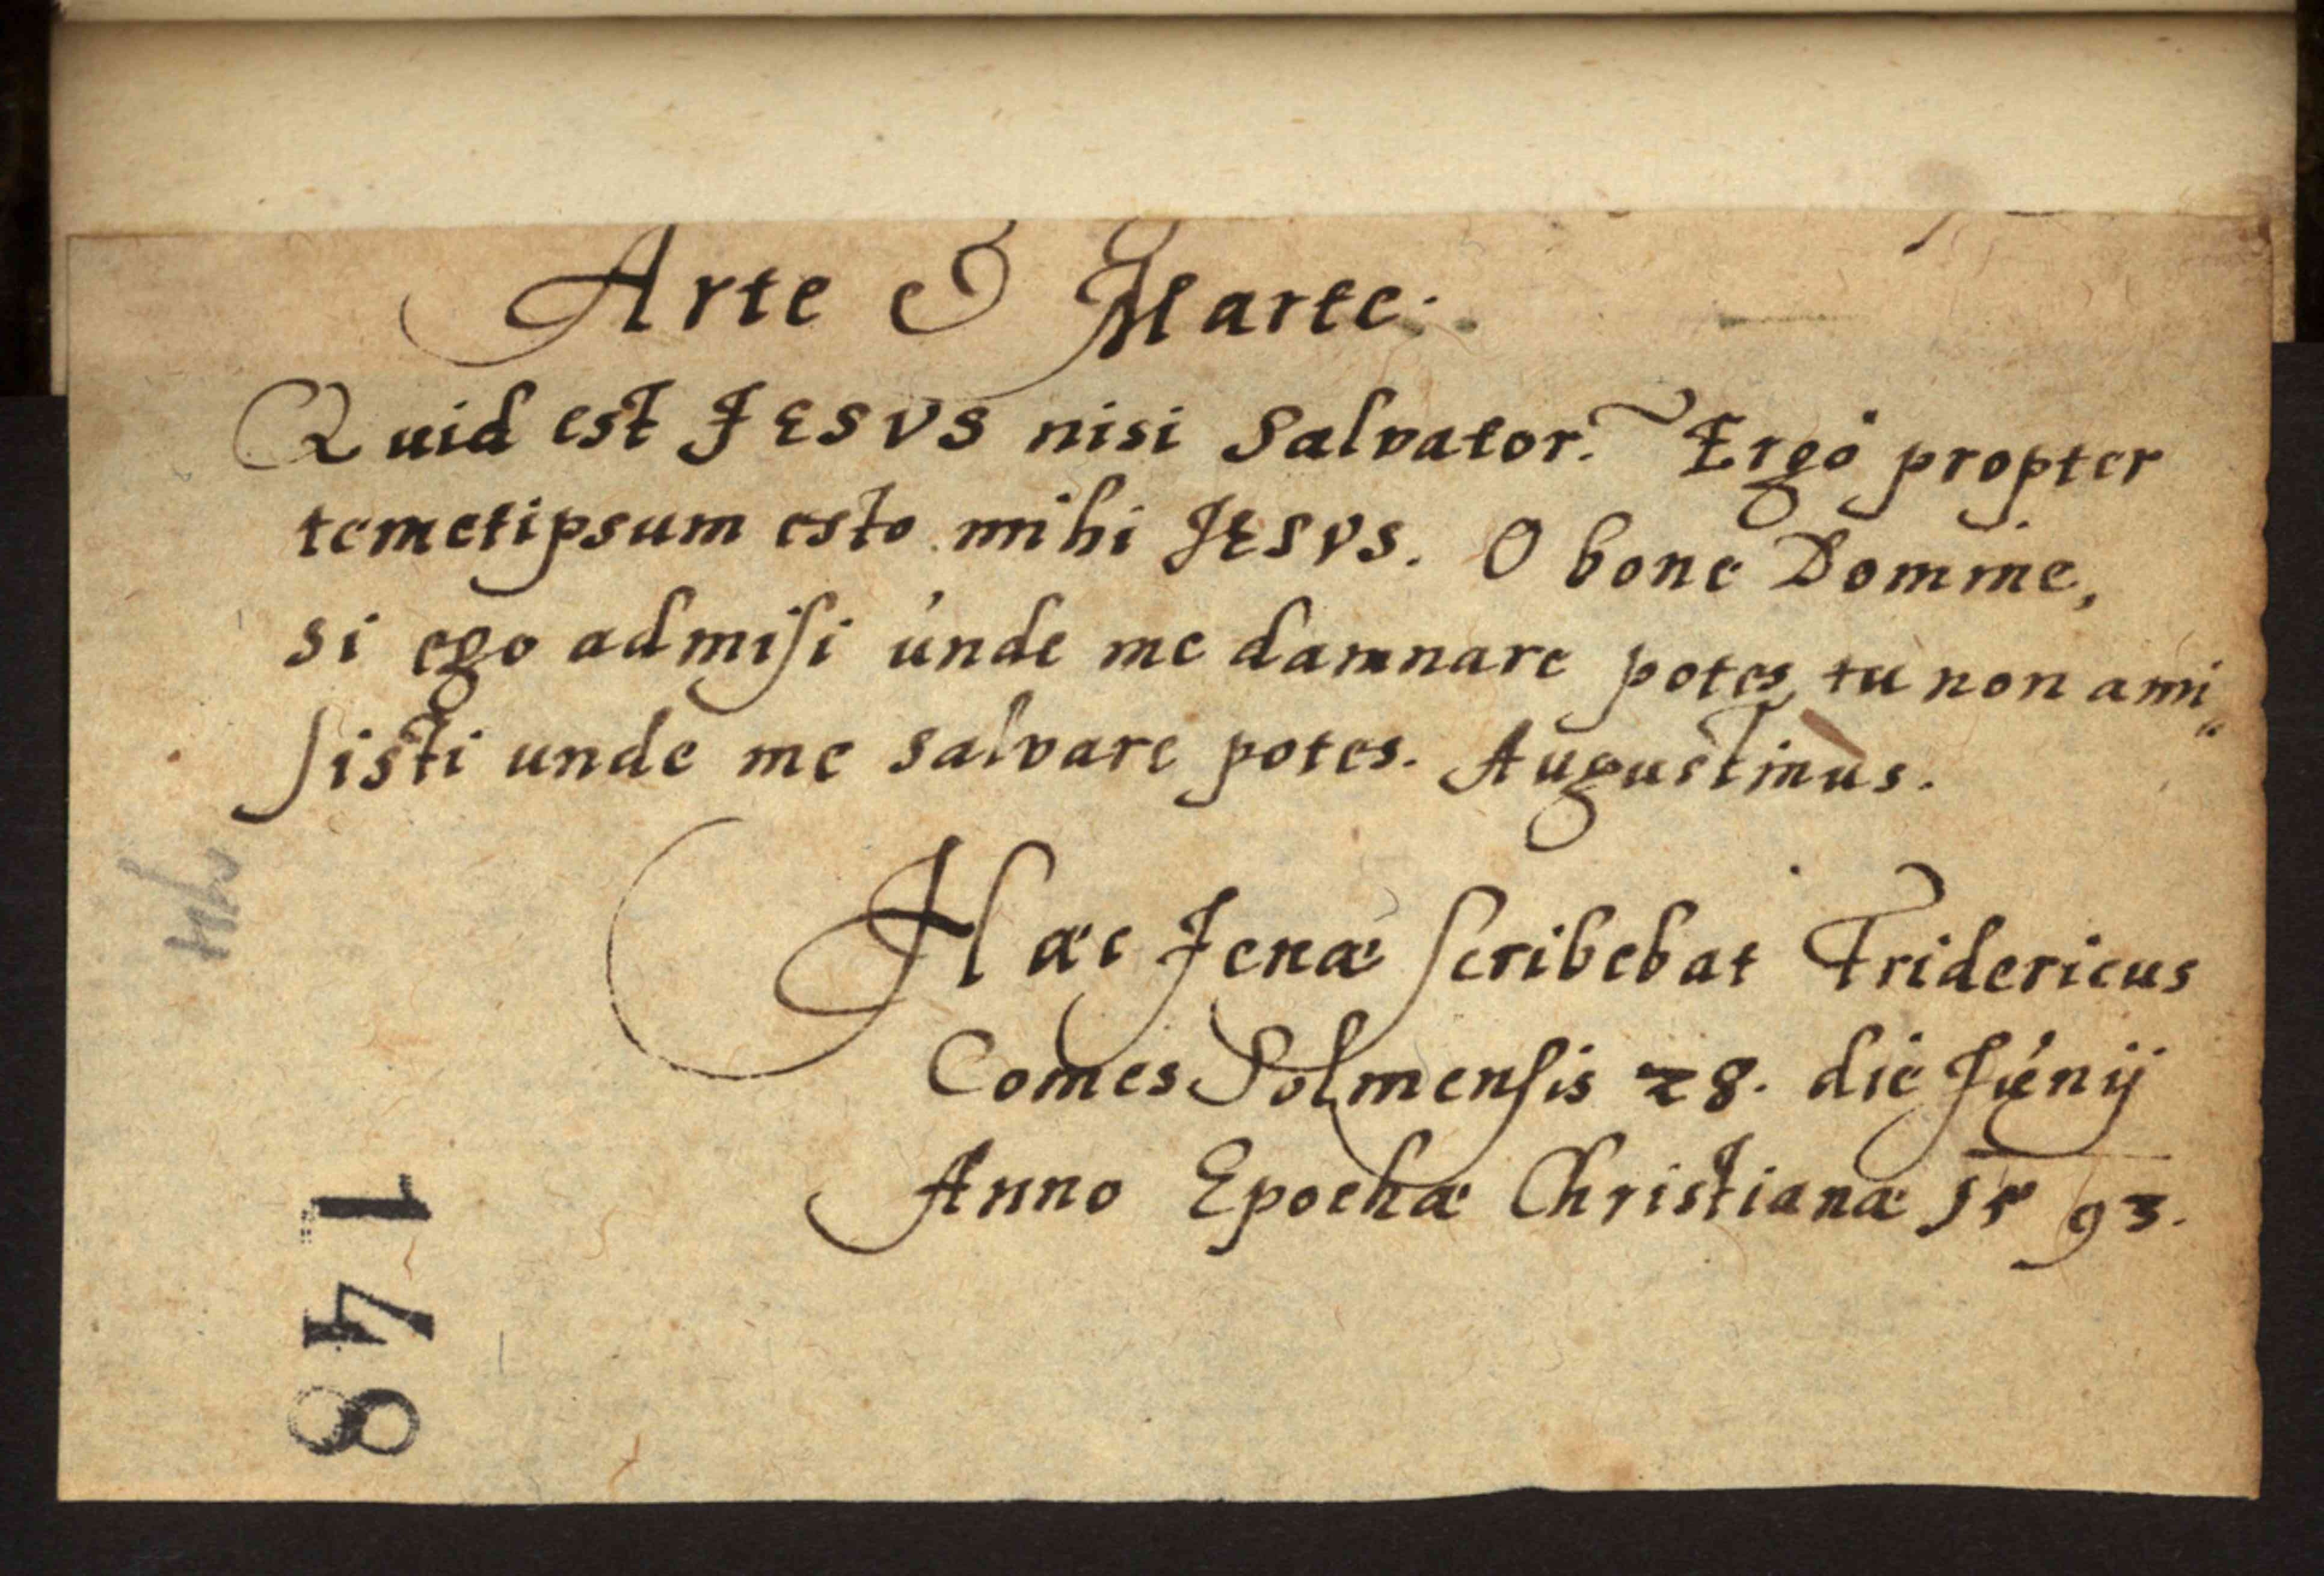 Arte & Marte.
Quid est JESVS nisi Salvator? Ergò propter
temetipsum esto mihi JESVS. O bone Domine,
si ego admisi unde me damnare potes, tu non ami„
sisti unde me salvare potes. Augustinus.
Hæc Jenæ scribebat Fridericus
Comes Solmensis 28. die Junij
Anno Epochæ Christianæ 1593.
148